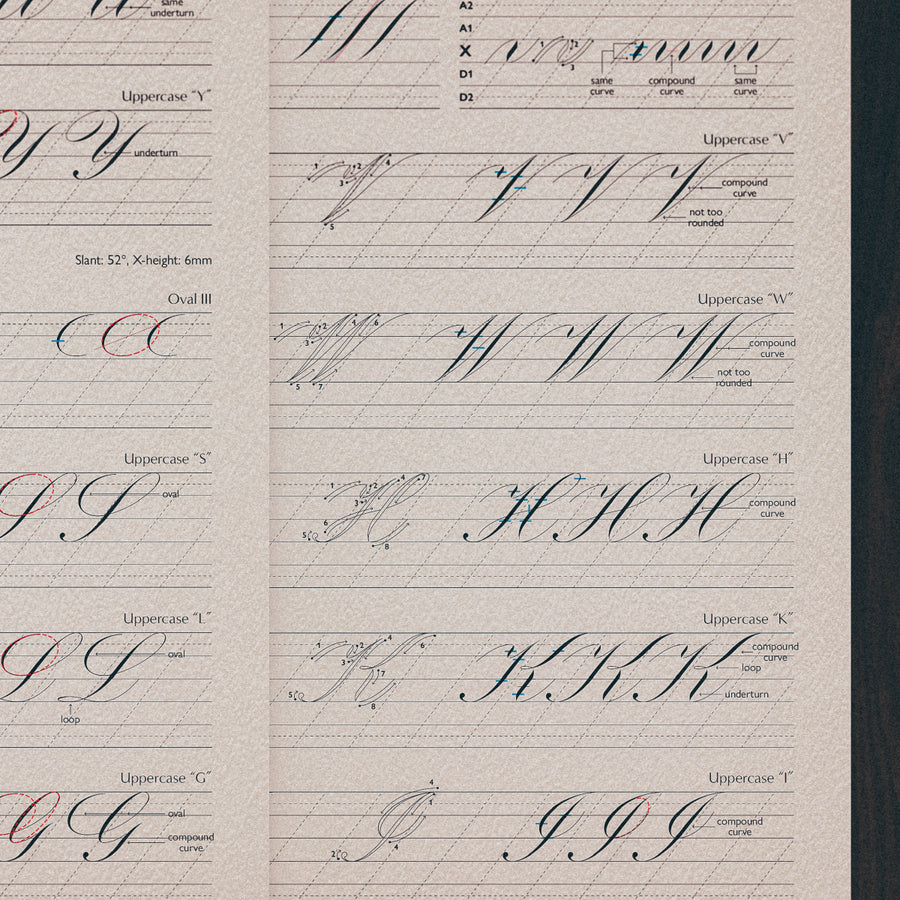 same
underturn
Uppercase "Y"
Y Y
underturn
Slant: 52°, X-height: 6mm
Oval III
Uppercase "S"
S S
oval
Uppercase "L"
L L
oval
loop
Uppercase "G"
G G
oval
compound
curve
A2
A1
X
D1
D2
1 2 3
same
curve
compound
curve
same
curve
Uppercase "V"
1 2 3 4 5
V V V
compound
curve
not too
rounded
Uppercase "W"
1 2 3 4 5 6 7
W W W
compound
curve
not too
rounded
Uppercase "H"
1 2 3 4 5 6 7 8
H H H
compound
curve
Uppercase "K"
1 2 3 4 5 6 7 8
K K K
compound
curve
loop
underturn
Uppercase "I"
1 2 4 4
I I I
compound
curve